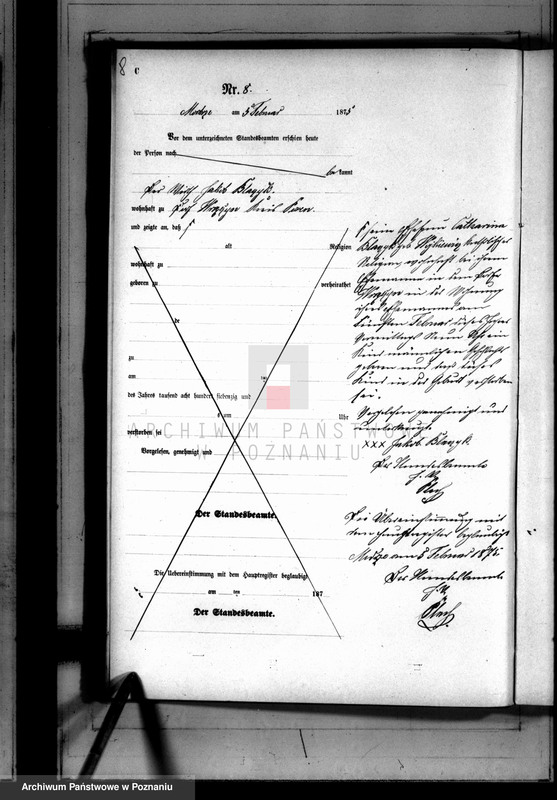 8 C
Nr. 8.
am 5 Februar 1875
Vor dem unterzeichneten Standesbeamten erschien heute
der Person nach
kannt
Der Wirth Jakob Blazyk
wohnhaft zu Kreis
und zeigte an, daß
alt Religion
wohnhaft zu
geboren zu verheirathet
de
zu
am ten
des Jahres tausend acht hundert siebenzig und
um Uhr
verstorben sei
Vorgelesen, genehmigt und
Der Standesbeamte.
Die Uebereinstimmung mit dem Hauptregister beglaubigt
am ten 187
Der Standesbeamte.
seine Ehefrau Catharina
Blazyk geb. katholischer
Religion, wohnhaft bei ihrem
Ehemanne in dem
in der Wohnung
ihres Ehemannes am
fünften Februar dieses Jahres
Vormittags neun Uhr ein
Kind männlichen Geschlechts
geboren und daß dieses
Kind in der Geburt verstorben
sei.
Vorgelesen genehmigt und
XXX Jakob Blazyk
Der Standesbeamte
Die Uebereinstimmung mit
dem Hauptregister beglaubigt
am 5 Februar 1875
Der Standesbeamte
ARCHIWUM PAŃSTWOWE
W POZNANIU
Archiwum Państwowe w Poznaniu